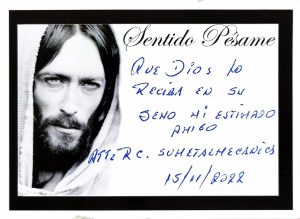 Sentido Pésame
QUE DIOS LO
RECIBA EN SU
SENO MI ESTIMADO
AMIGO
ATTE RC. SUMETALMECANICA
15/11/2022